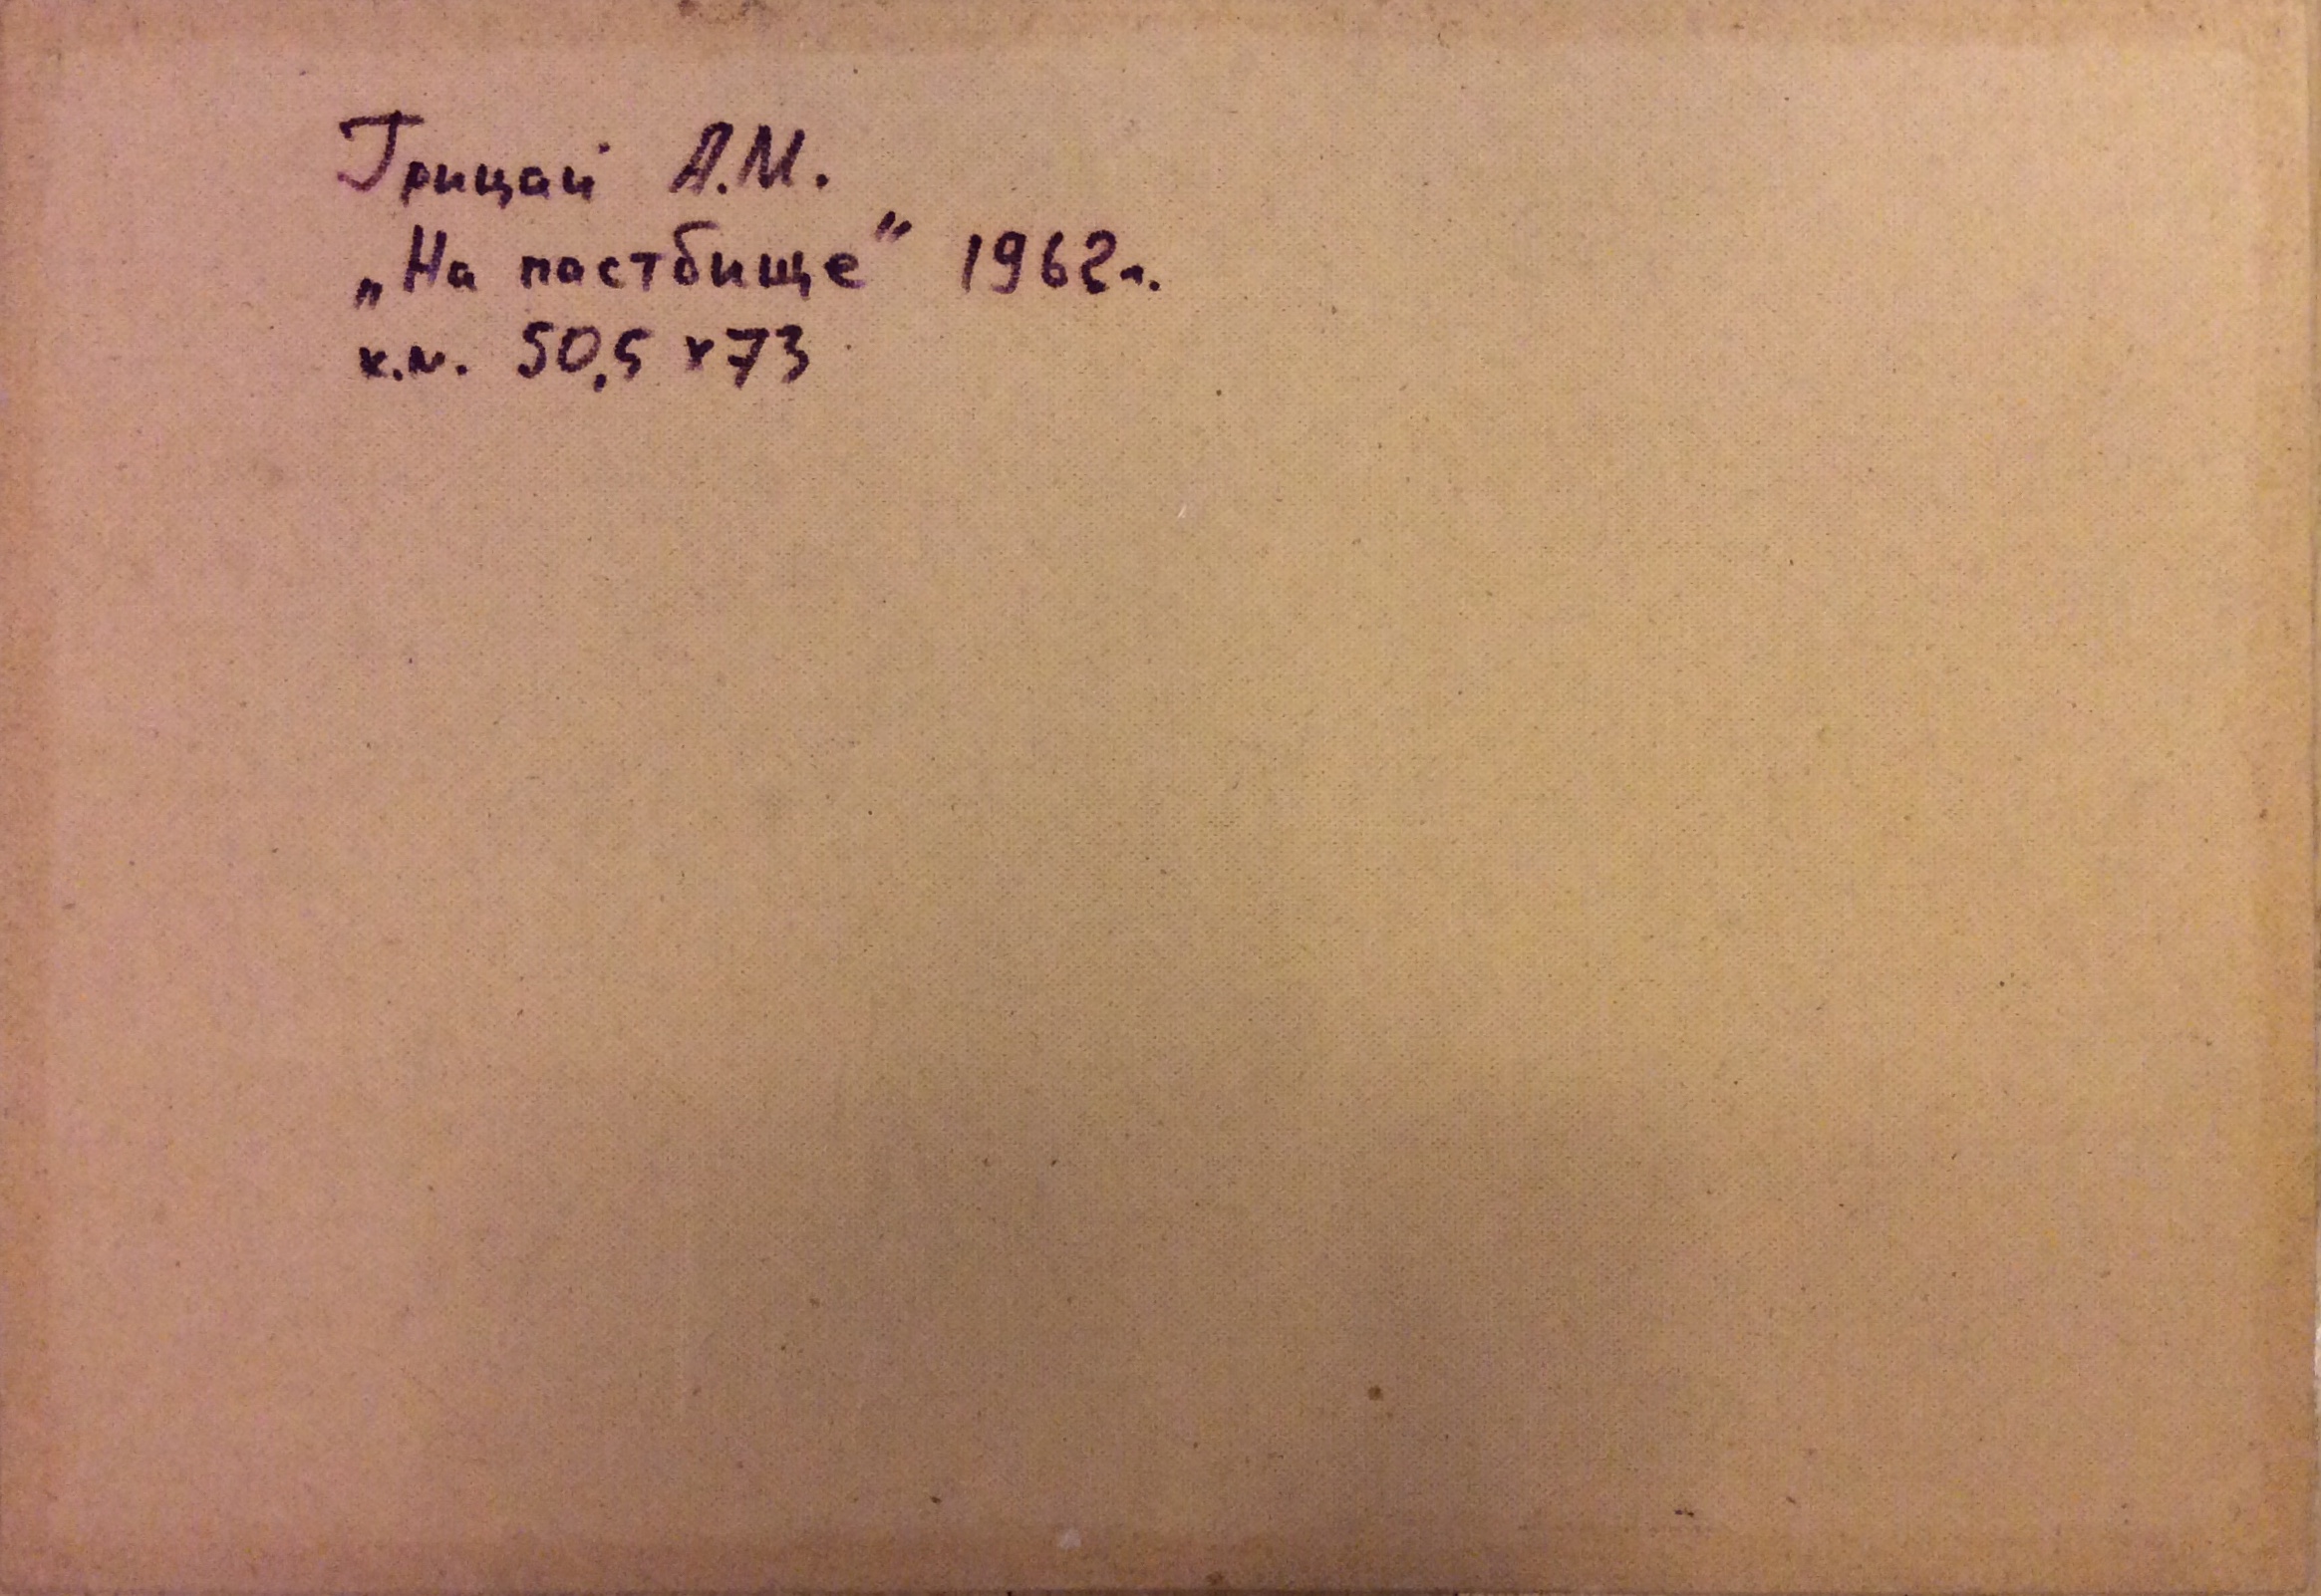 Грицай А.М.
„На пастбище" 1962г.
к.м. 50,5 х 73